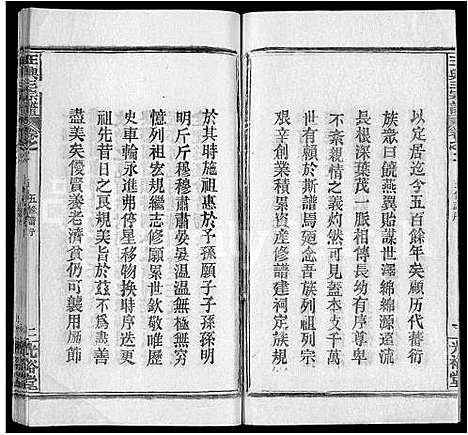 以定居迄今五百餘年矣顧历代蕃衍
族眾曰饒燕翼貽謀世澤綿綿源遠流
長根深葉茂一脈相傳長幼有序尊卑
不紊親情之義灼然可見蓋本支千萬
世有願於斯譜焉廻念吾族列祖列宗
艱辛創業積累資產修譜建祠定族規
於其時施祖惠于孫願子子孫孫明
明斤斤穆穆肅肅晏晏温温無罔
憶烈祖宏規繼志修願累世欽敬唯歷
史車輪永進弗停星移物換時序送更
祖先昔日之良規美皆於兹不為盡善
盡美矣優賢養老濟貧仍可褒節
王興宗譜
五修譜序
二
光裕堂